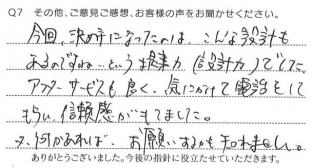 Q7 その他、ご意見ご感想、お客様の声をお聞かせください。
今回、決め手になったのは、こんな設計も
あるのですね…という提案力(設計力)でした。
アフターサービスも良く、気にかけて電話をして
もらい、信頼感がもてました。
又、何かあれば、お願いするかも知れません。
ありがとうございました。今後の指針に役立たせていただきます。